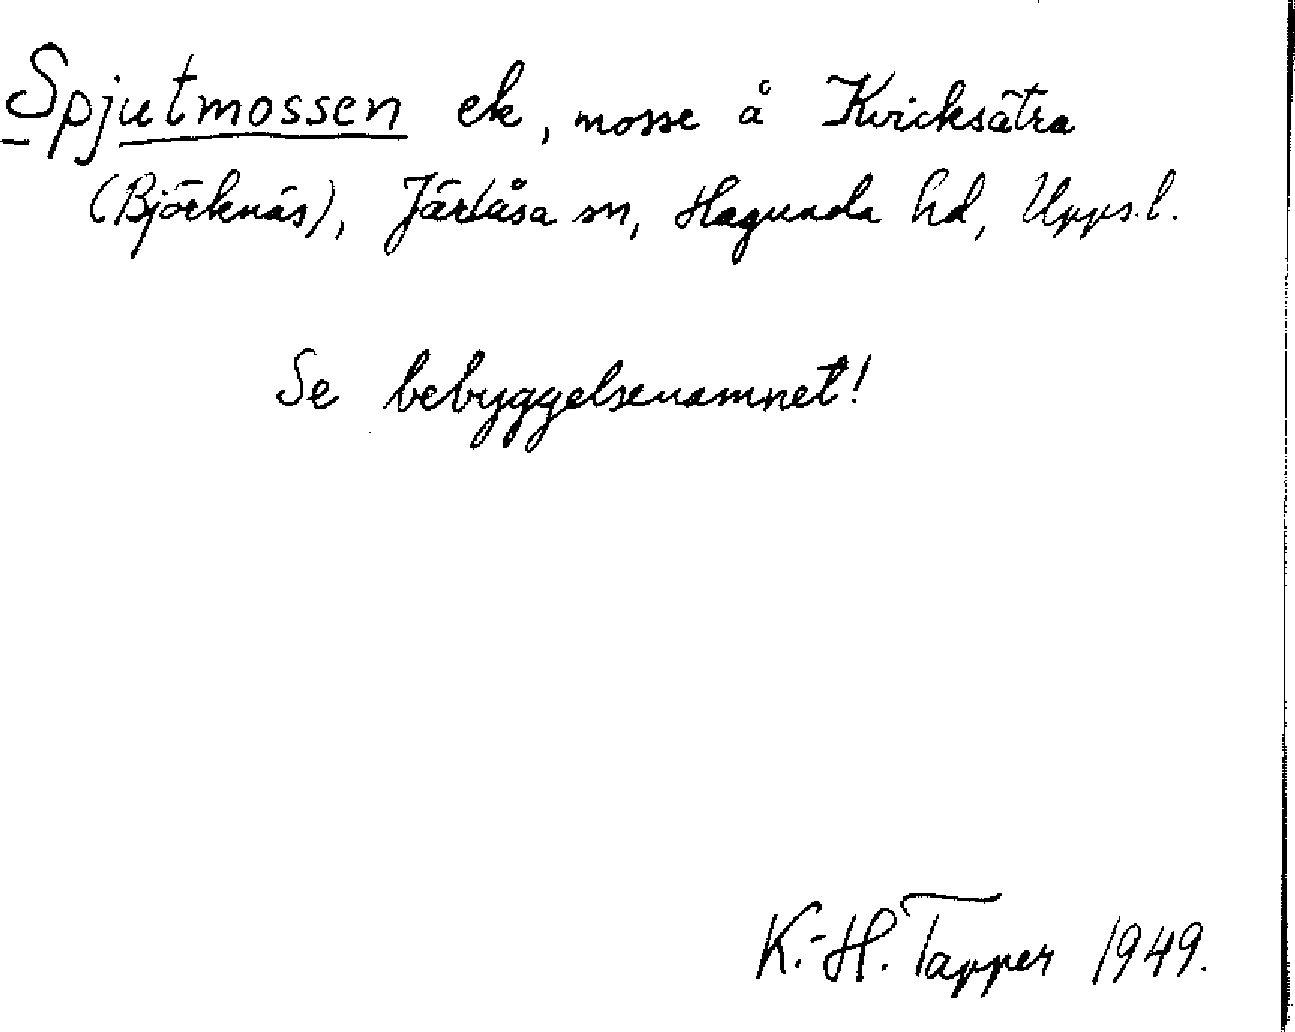 Spjutmossen ek, mosse å Kvicksätra
(Björknäs), Järlåsa sn, Hagunda hd, Upps.l.
Se bebyggelsenamnet!
K.-H. Tapper 1949.